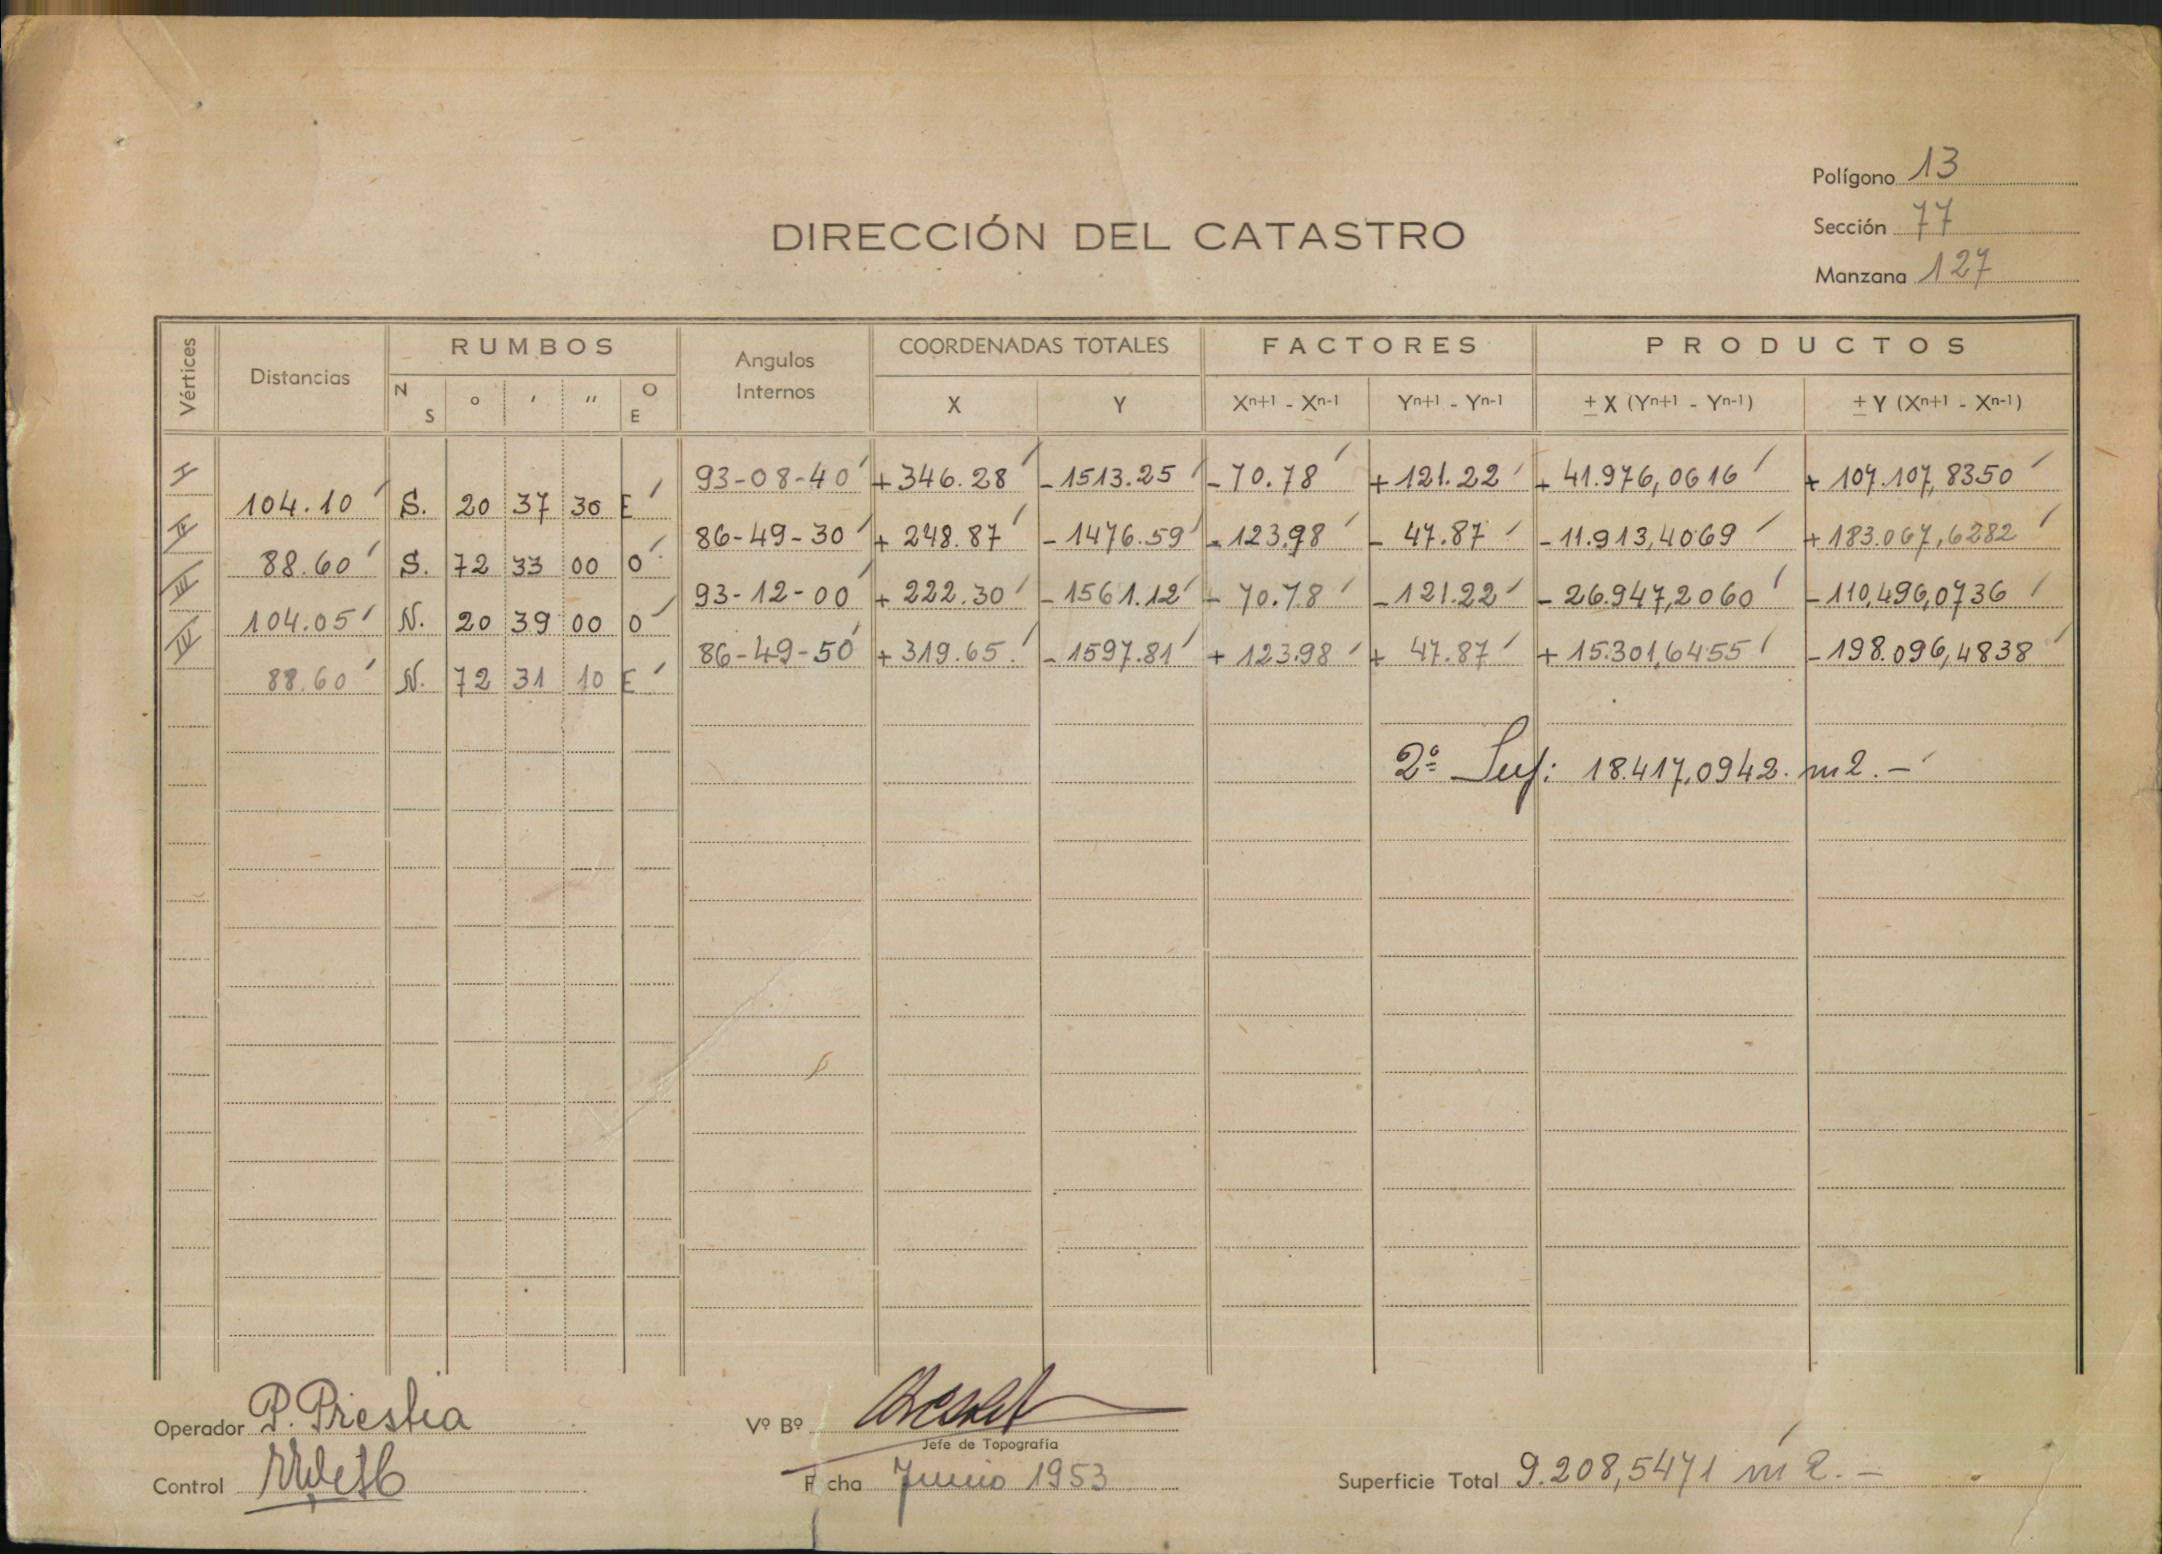 Polígono 13
Sección 77
Manzana 127
DIRECCIÓN DEL CATASTRO
Vértices Distancias RUMBOS Angulos Internos COORDENADAS TOTALES FACTORES PRODUCTOS
N S ° ' " O E X Y Xn+1 - Xn-1 Yn+1 - Yn-1 ± X (Yn+1 - Yn-1) ± Y (Xn+1 - Xn-1)
I 93-08-40 +346.28 -1513.25 -70.78 +121.22 +41.976,0616 +107.107,8350
104.10 S. 20 37 30 E
II 86-49-30 +248.87 -1476.59 -123.98 -47.87 -11.913,4069 +183.067,6282
88.60 S. 72 33 00 O
III 93-12-00 +222.30 -1561.12 -70.78 -121.22 -26.947,2060 -110,496,0736
104.05 N. 20 39 00 O
IV 86-49-50 +319.65 -1597.81 +123.98 +47.87 +15.301,6455 -198.096,4838
88.60 N. 72 31 10 E
2º Sup: 18.417,0942. m2.-
Operador P. Prestia
Vº Bº
Jefe de Topografía
Control
Fecha Junio 1953
Superficie Total 9.208,5471 m2.-